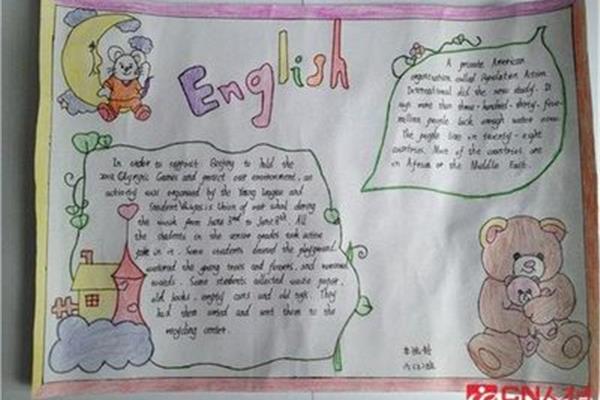 English
In order to support Beijing to hold the
2008 Olympic Games and protect our environment, an
activity was organized by the Young League and
Student Union of
the week from June 2nd to June 8th. All
the students in the senior grades took active
part in it. Some students cleaned the playground
watered the young trees and flowers, and removed
weeds. Some students collected waste paper,
old books, empty cans and old rags. They
had them sorted and sent them to the
recycling center.
A private American
organization called Population Action
International did the new study. It
says more than three-hundred-thirty-five-
million people lack enough water now.
The people live in twenty-eight
countries. Most of the countries are
in Africa or the Middle East.